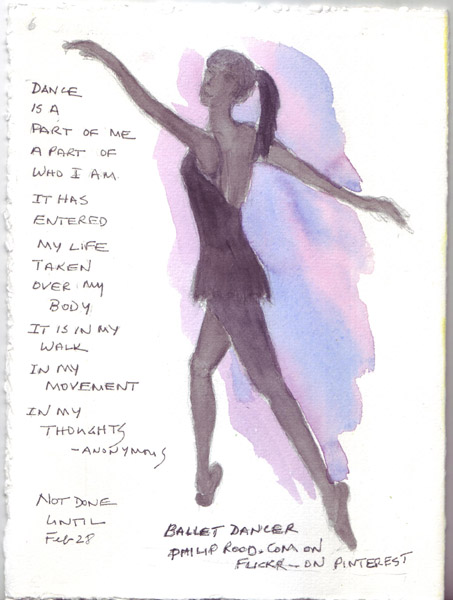 6
DANCE
IS A
PART OF ME
A PART OF
WHO I AM.
IT HAS
ENTERED
MY LIFE
TAKEN
OVER MY
BODY
IT IS IN MY
WALK
IN MY
MOVEMENT
IN MY
THOUGHTS
-ANONYMOUS
NOT DONE
UNTIL
Feb 28
BALLET DANCER
PHILIP ROOD.COM ON
FLICKR - ON PINTEREST